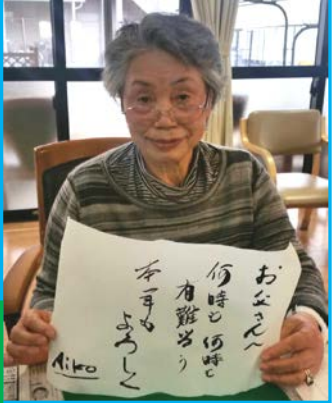 お父さんへ
何時も何時も
有難う
本年も
よろしく
Aiko